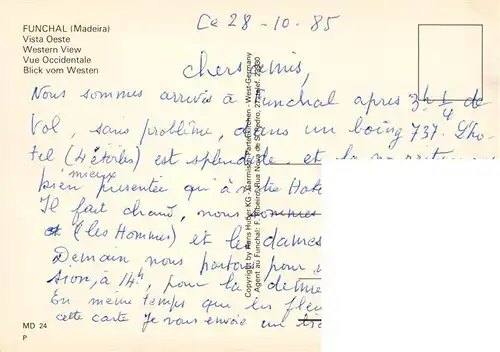 FUNCHAL (Madeira)
Vista Oeste
Western View
Vue Occidentale
Blick vom Westen
Ce 28-10-85
chers amis,
Nous sommes arrivés à Funchal apres 3h 1/4 de
Vol, sans problème, dans un boing 737. L'ho-
tel (4 étoiles) est splendide et la
bien mieux presentée qu'à notre Hote
Il fait chaud, nous sommes
et (les Hommes) et les dames
Demain nous partons pour
sion, à 14h, pour la
En meme temps que les
cette carte Je vous envoie un
Copyright by Hans Huber KG - Garmisch-Partenkirchen - West-Germany
Agent au Funchal: F. Ribeiro, Rua Nova de S. Pedro, 27, telef. 22930
MD 24
P